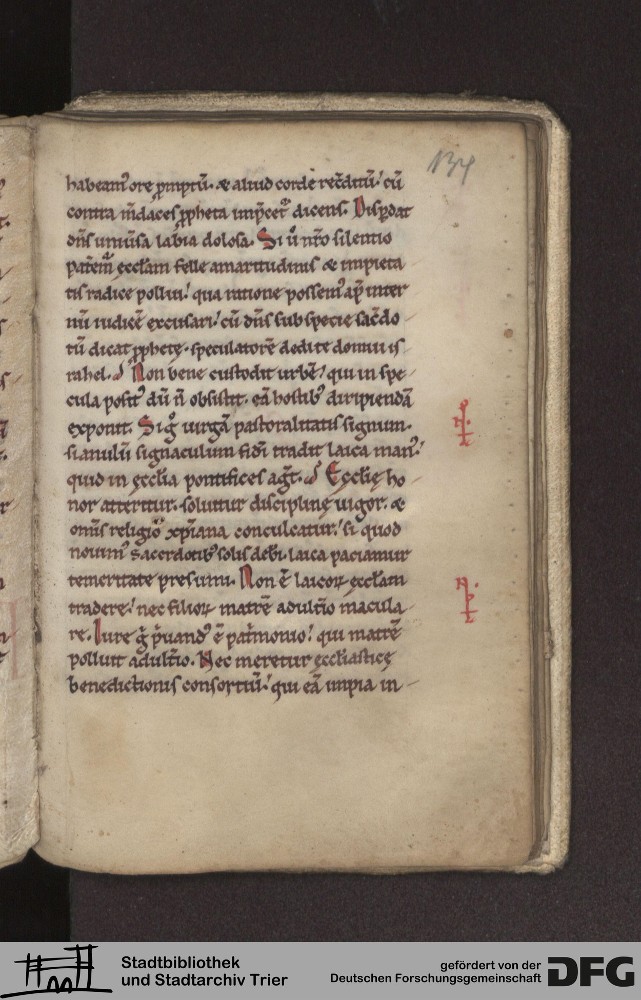 134
habeam᷒ ore ꝓmptū. & aliud corde recōditū! cū
contra mdaces ꝓpheta imp̄cet᷑ dicens. Disꝑdat
dn̄s uniūsa labia dolosa. Si ū nr̄o silentio
patem᷒ ęccl̄am felle amaritudinis & impieta
tis radice pollui! qua ratione possem᷒ ap̄ inter
nū iudicē excusari! cū dn̄s sub specie sac̄do
tū dicat ꝓphetę. speculatorē dedi te domui is
rahel. Non bene custodit urbē! qui in spe
cula posit᷒ dū n̄ obsistit. eā hostib᷒ diripiendā
exponit. Si gͦ uirgā pastoralitatis signum.
si anulū signaculum fidei tradit laica man᷒!
quid in ęccl̄ia pontifices agt̄. Ęccl̄ię ho
nor atteritur. soluitur disciplinę uigor. &
om̄is religio xp̄iana conculcatur! si quod
nouim᷒ sacerdotib᷒ solis deb̄i. laica paciamur
temeritate presumi. Non ē laicoꝝ ęccl̄am
tradere! nec filioꝝ matrē adult̄io macula
re. Iure g̊ p̄uand᷒ ē pat̄monio! qui matrē
polluit adult̄io. Nec meretur ęccl̄iasticę
benedictionis consortiū! qui eā impia in
Stadtbibliothek
und Stadtarchiv Trier
gefördert von der
Deutschen Forschungsgemeinschaft
DFG